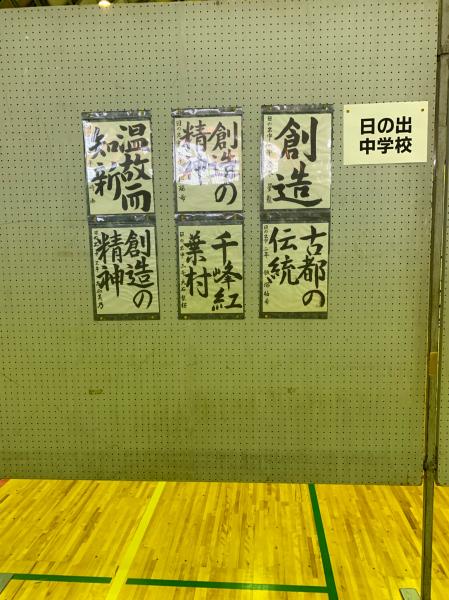 日の出
中学校
創造
創造の
精神
温故而
知新
古都の
伝統
千峰紅
葉村
創造の
精神